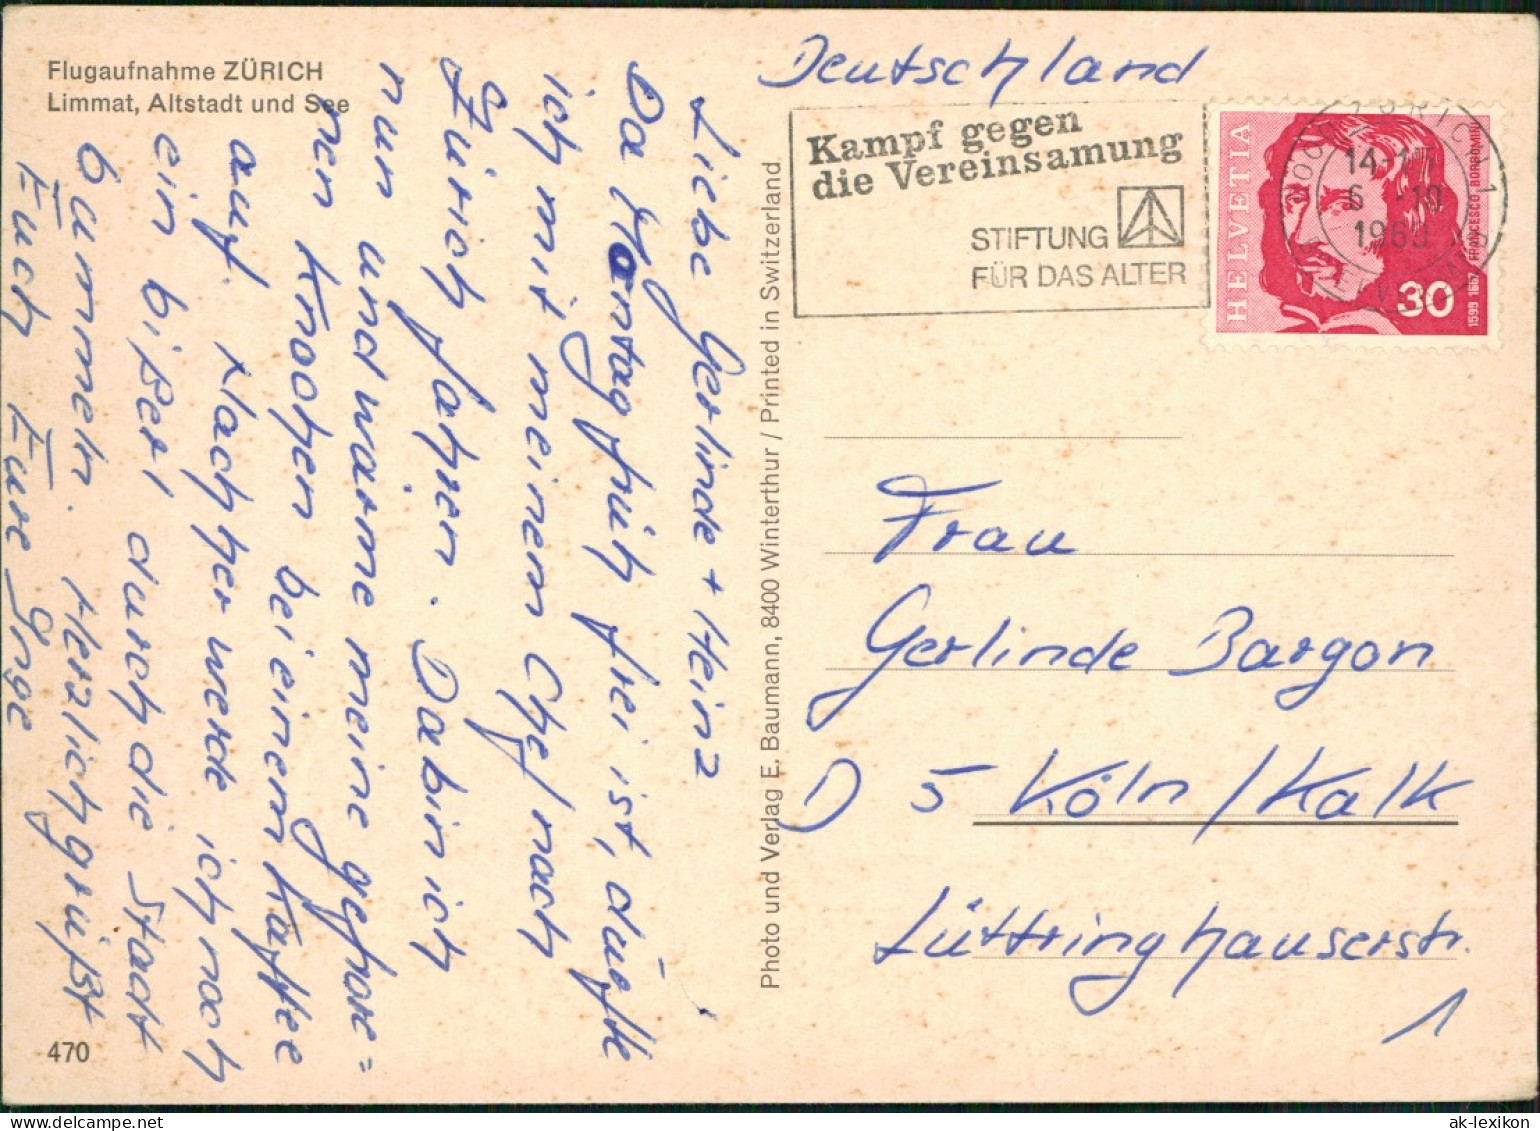 Flugaufnahme ZÜRICH
Limmat, Altstadt und See
Liebe Gerlinde + Heinz
Da Montag früh frei ist, durfte
ich mit meinem Chef nach
Zürich fahren. Da bin ich
nun und wärme meine gefrore=
nen Knochen bei einem Kaffee
auf. Nachher werde ich noch
ein bißerl durch die Stadt
bummeln. Herzlich grüßt
Euch Eure Inge
470
Photo und Verlag E. Baumann, 8400 Winterthur / Printed in Switzerland
Deutschland
Kampf gegen
die Vereinsamung
STIFTUNG
FÜR DAS ALTER
HELVETIA
30
1599 1667 FRANCESCO BORROMINI
14-17
6 10
1969
Frau
Gerlinde Bargon
D 5 Köln / Kalk
Lüttringhauserstr.
1
ak-lexikon